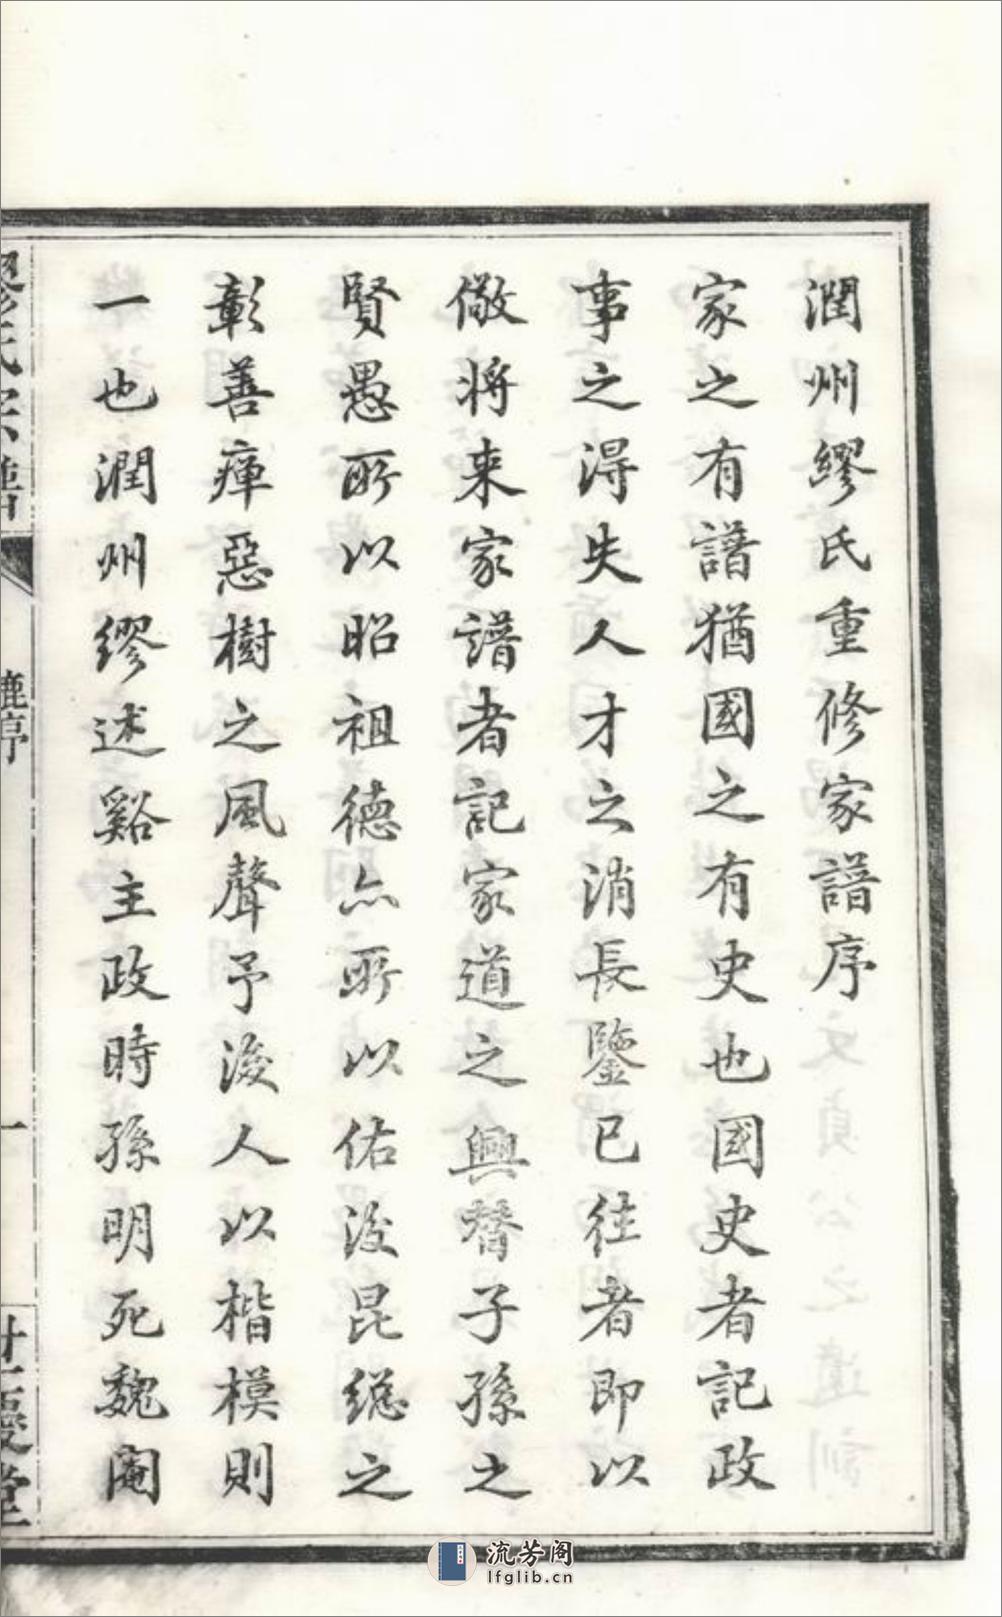 潤州繆氏重修家譜序
家之有譜猶國之有史也國史者記政
事之得失人才之消長鑒已往者即以
儆將來家譜者記家道之興替子孫之
賢愚所以昭祖德亦所以佑後昆總之
彰善癉惡樹之風聲予後人以楷模則
一也潤州繆述谿主政時孫明死魏閹
繆氏宗譜
序
一
慶堂
流芳阁
lfglib.cn